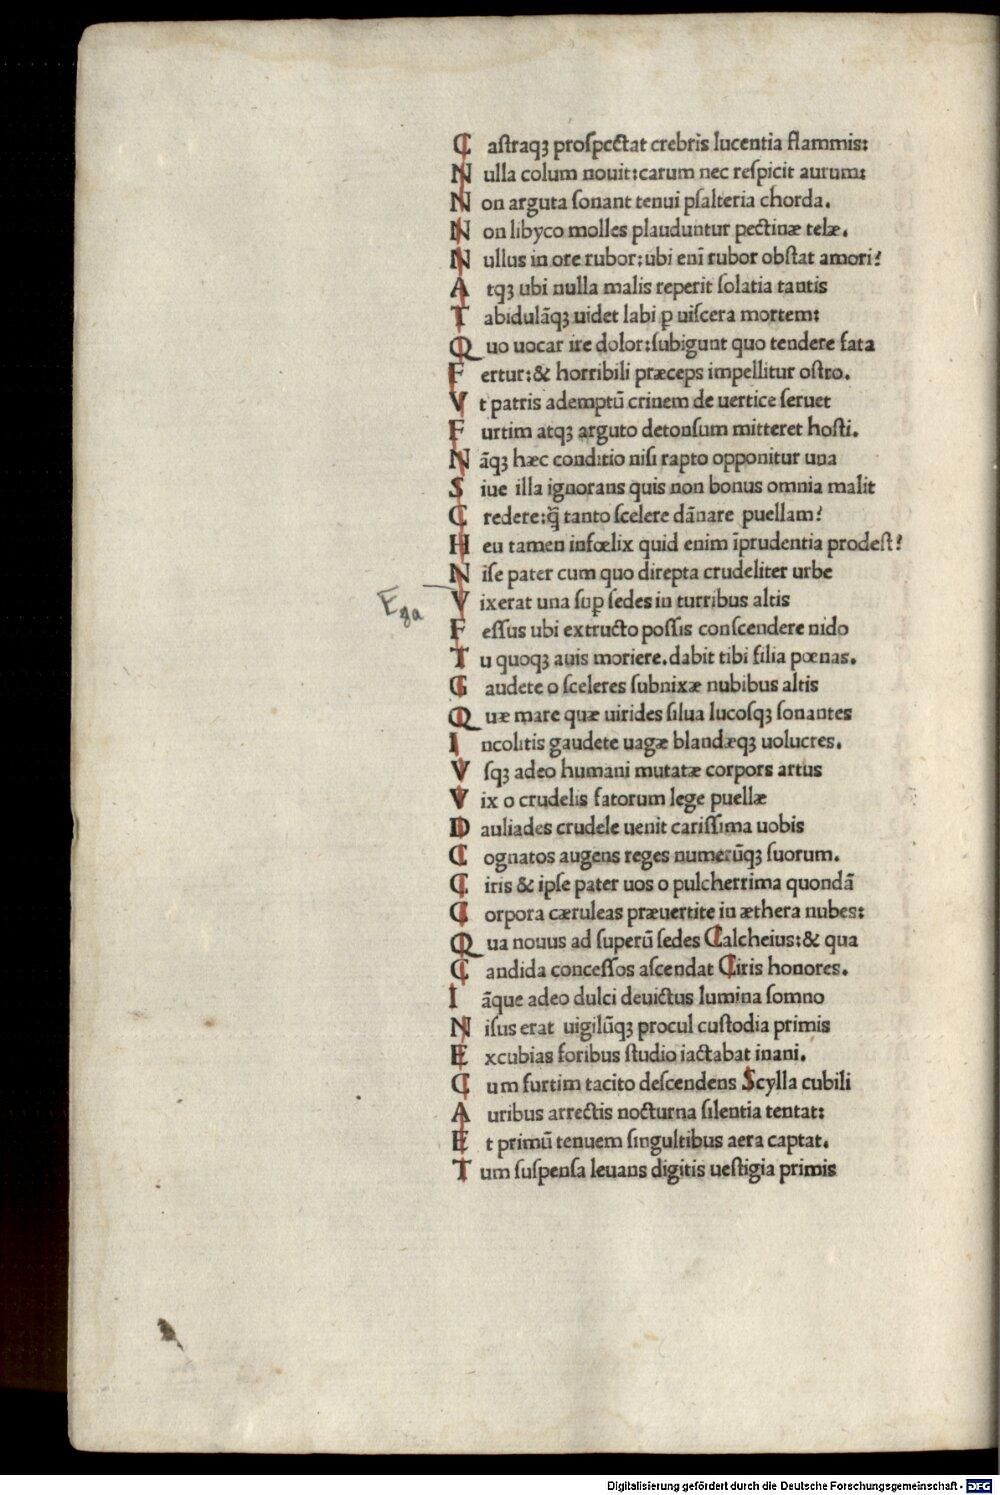 Castraqꝫ proſpectat crebris lucentia flammis:
Nulla colum nouit:carum nec reſpicit aurum:
Non arguta ſonant tenui pſalteria chorda.
Non libyco molles plauduntur pectinæ telæ.
Nullus in ore rubor:ubi eni᷈ rubor obſtat amori?
Atqꝫ ubi nulla malis reperit ſolatia tantis
Tabidulãqꝫ uidet labi ꝑ uiſcera mortem:
Quo uocar ire dolor:ſubigunt quo tendere fata
Fertur:& horribili præceps impellitur oſtro.
Vt patris ademptũ crinem de uertice ſeruet
Furtim atqꝫ arguto detonſum mitteret hoſti.
Nãqꝫ hæc conditio niſi rapto opponitur una
Siue illa ignorans quis non bonus omnia malit
Credere:q̃ tanto ſcelere dãnare puellam?
Heu tamen infœlix quid enim ĩprudentia prodeſt?
Niſe pater cum quo direpta crudeliter urbe
Vixerat una ſuꝑ ſedes in turribus altis
Feſſus ubi extructo poſſis conſcendere nido
Tu quoqꝫ auis moriere.dabit tibi filia pœnas.
Gaudete o ſceleres ſubnixæ nubibus altis
Quæ mare quæ uirides ſilua lucoſqꝫ ſonantes
Incolitis gaudete uagæ blandæqꝫ uolucres.
Vſqꝫ adeo humani mutatæ corpors artus
Vix o crudelis fatorum lege puellæ
Dauliades crudele uenit cariſſima uobis
Cognatos augens reges numerũqꝫ ſuorum.
Ciris & ipſe pater uos o pulcherrima quondã
Corpora cæruleas præuertite in æthera nubes:
Qua nouus ad ſuperũ ſedes Calcheius:& qua
Candida conceſſos aſcendat Ciris honores.
Iãque adeo dulci deuictus lumina ſomno
Niſus erat uigilũqꝫ procul cuſtodia primis
Excubias foribus ſtudio iactabat inani.
Cum furtim tacito deſcendens Scylla cubili
Auribus arrectis nocturna ſilentia tentat:
Et primũ tenuem ſingultibus aera captat.
Tum ſuſpenſa leuans digitis ueſtigia primis
Digitalisierung gefördert durch die Deutsche Forschungsgemeinschaft - DFG